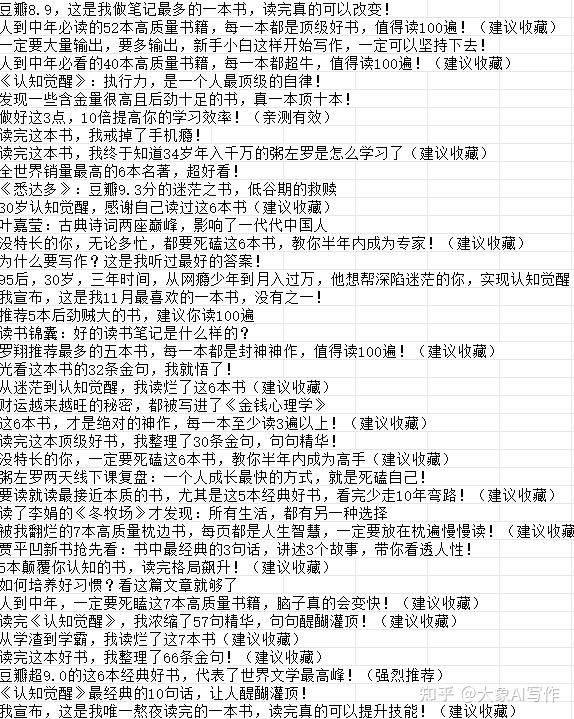 豆瓣8.9，这是我做笔记最多的一本书，读完真的可以改变！
人到中年必读的52本高质量书籍，每一本都是顶级好书，值得读100遍！（建议收藏）
一定要大量输出，要多输出，新手小白这样开始写作，一定可以坚持下去！
人到中年必看的40本高质量书籍，每一本都超牛，值得读100遍！（建议收藏）
《认知觉醒》：执行力，是一个人最顶级的自律！
发现一些含金量很高且后劲十足的书，真一本顶十本！
做好这3点，10倍提高你的学习效率！（亲测有效）
读完这本书，我戒掉了手机瘾！
读完这本书，我终于知道34岁年入千万的粥左罗是怎么学习了（建议收藏）
全世界销量最高的6本名著，超好看！
《悉达多》：豆瓣9.3分的迷茫之书，低谷期的救赎
30岁认知觉醒，感谢自己读过这6本书（建议收藏）
叶嘉莹：古典诗词两座巅峰，影响了一代代中国人
没特长的你，无论多忙，都要死磕这6本书，教你半年内成为专家！（建议收藏）
为什么要写作？这是我听过最好的答案！
95后，30岁，三年时间，从网瘾少年到月入过万，他想帮深陷迷茫的你，实现认知觉醒
我宣布，这是我11月最喜欢的一本书，没有之一！
推荐5本后劲贼大的书，建议你读100遍
读书锦囊：好的读书笔记是什么样的？
罗翔推荐最多的五本书，每一本都是封神神作，值得读100遍！（建议收藏）
光看这本书的32条金句，我就悟了！
从迷茫到认知觉醒，我读烂了这6本书（建议收藏）
财运越来越旺的秘密，都被写进了《金钱心理学》
这6本书，才是绝对的神作，每一本至少读3遍以上！（建议收藏）
读完这本顶级好书，我整理了30条金句，句句精华！
没特长的你，一定要死磕这6本书，教你半年内成为高手（建议收藏）
粥左罗两天线下课复盘：一个人成长最快的方式，就是死磕自己！
要读就读最接近本质的书，尤其是这5本经典好书，看完少走10年弯路！（建议收藏）
读了李娟的《冬牧场》才发现：所有生活，都有另一种选择
被我翻烂的7本高质量枕边书，每页都是人生智慧，一定要放在枕遍慢慢读！（建议收藏
贾平凹新书抢先看：书中最经典的3句话，讲述3个故事，带你看透人性！
5本颠覆你认知的书，读完格局飙升！（建议收藏）
如何培养好习惯？看这篇文章就够了
人到中年，一定要死瞌这7本高质量书籍，脑子真的会变快！（建议收藏）
读完《认知觉醒》，我浓缩了57句精华，句句醍醐灌顶！（建议收藏）
从学渣到学霸，我读烂了这7本书（建议收藏）
读完这本好书，我整理了66条金句！（建议收藏）
豆瓣超9.0的这6本经典好书，代表了世界文学最高峰！（强烈推荐）
《认知觉醒》最经典的10句话，让人醍醐灌顶！
我宣布，这是我唯一熬夜读完的一本书，读完真的可以提升技能！（建议收藏）
知乎 @大象AI写作